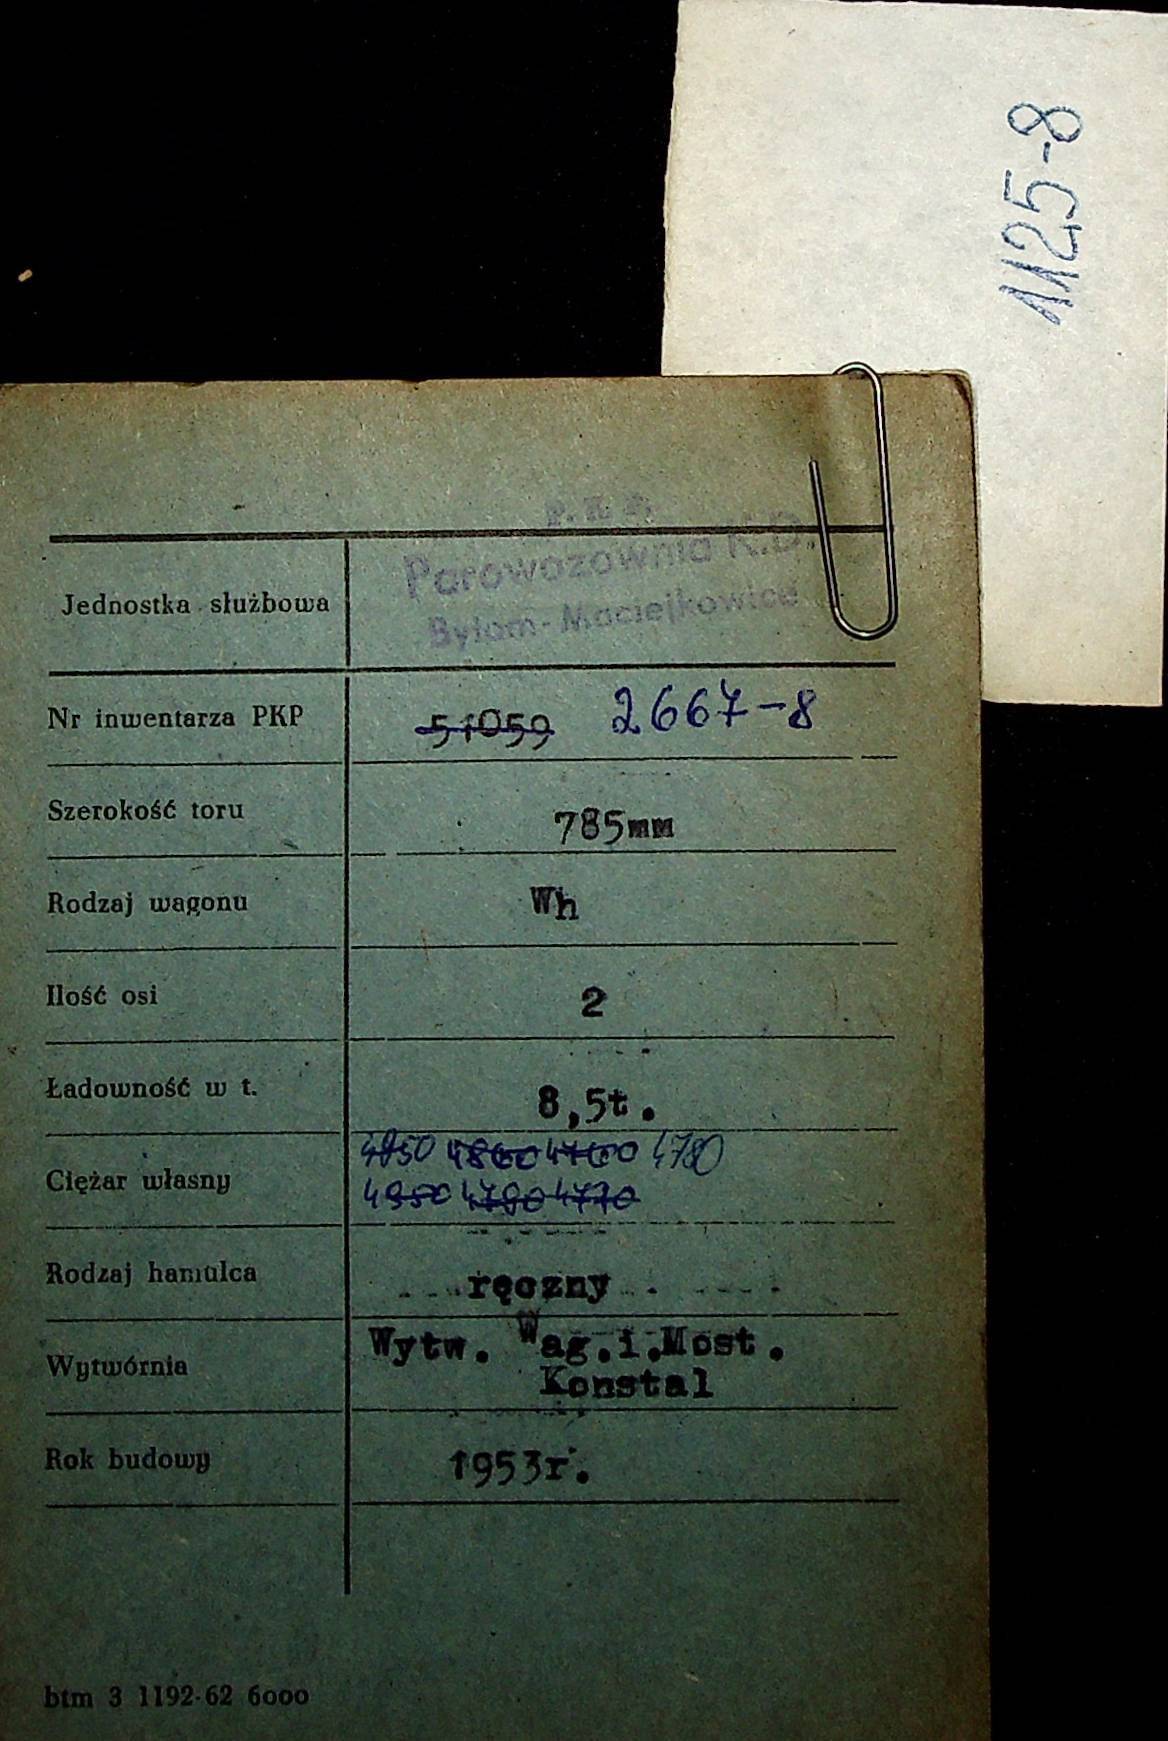 1125-8
P. K. P.
Parowozownia K.D.
Bytom-Maciejkowice
Jednostka służbowa
Nr inwentarza PKP 51059 2667-8
Szerokość toru 785mm
Rodzaj wagonu Wh
Ilość osi 2
Ładowność w t. 8,5t.
4850 4860 4700 4780
Ciężar własny
4950 4790 4770
Rodzaj hamulca ręczny
Wytw. Wag.i.Most.
Wytwórnia
Konstal
Rok budowy 1953r.
btm 3 1192-62 6000